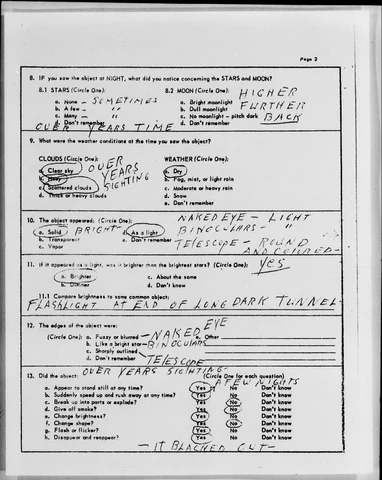 Page 2
8. IF you saw the object at NIGHT, what did you notice concerning the STARS and MOON?
8.1 STARS (Circle One): 8.2 MOON (Circle One): HIGHER
a. None – SOMETIMES a. Bright moonlight
b. A few – " b. Dull moonlight FURTHER
c. Many – " c. No moonlight – pitch dark BACK
d. Don't remember d. Don't remember
OVER YEARS TIME
9. What were the weather conditions at the time you saw the object?
CLOUDS (Circle One): OVER YEARS SIGHTING WEATHER (Circle One):
a. Clear sky a. Dry
b. Hazy b. Fog, mist, or light rain
c. Scattered clouds c. Moderate or heavy rain
d. Thick or heavy clouds d. Snow
e. Don't remember
10. The object appeared: (Circle One): NAKED EYE – LIGHT
a. Solid BRIGHT d. As a light BINOCULARS – "
b. Transparent e. Don't remember TELESCOPE – ROUND
c. Vapor AND COLORED
11. If it appeared as a light, was it brighter than the brightest stars? (Circle One): Yes
a. Brighter c. About the same
b. Dimmer d. Don't know
11.1 Compare brightness to some common object:
FLASHLIGHT AT END OF LONG DARK TUNNEL
12. The edges of the object were:
(Circle One): a. Fuzzy or blurred – NAKED EYE e. Other
b. Like a bright star – BINOCULARS
c. Sharply outlined
d. Don't remember TELESCOPE
OVER YEARS SIGHTING –
13. Did the object: (Circle One for each question)
A FEW NIGHTS
a. Appear to stand still at any time? Yes No Don't know
b. Suddenly speed up and rush away at any time? Yes No Don't know
c. Break up into parts or explode? Yes No Don't know
d. Give off smoke? Yes No Don't know
e. Change brightness? Yes No Don't know
f. Change shape? Yes No Don't know
g. Flash or flicker? Yes No Don't know
h. Disappear and reappear? Yes No Don't know
– IT BLACKED OUT –